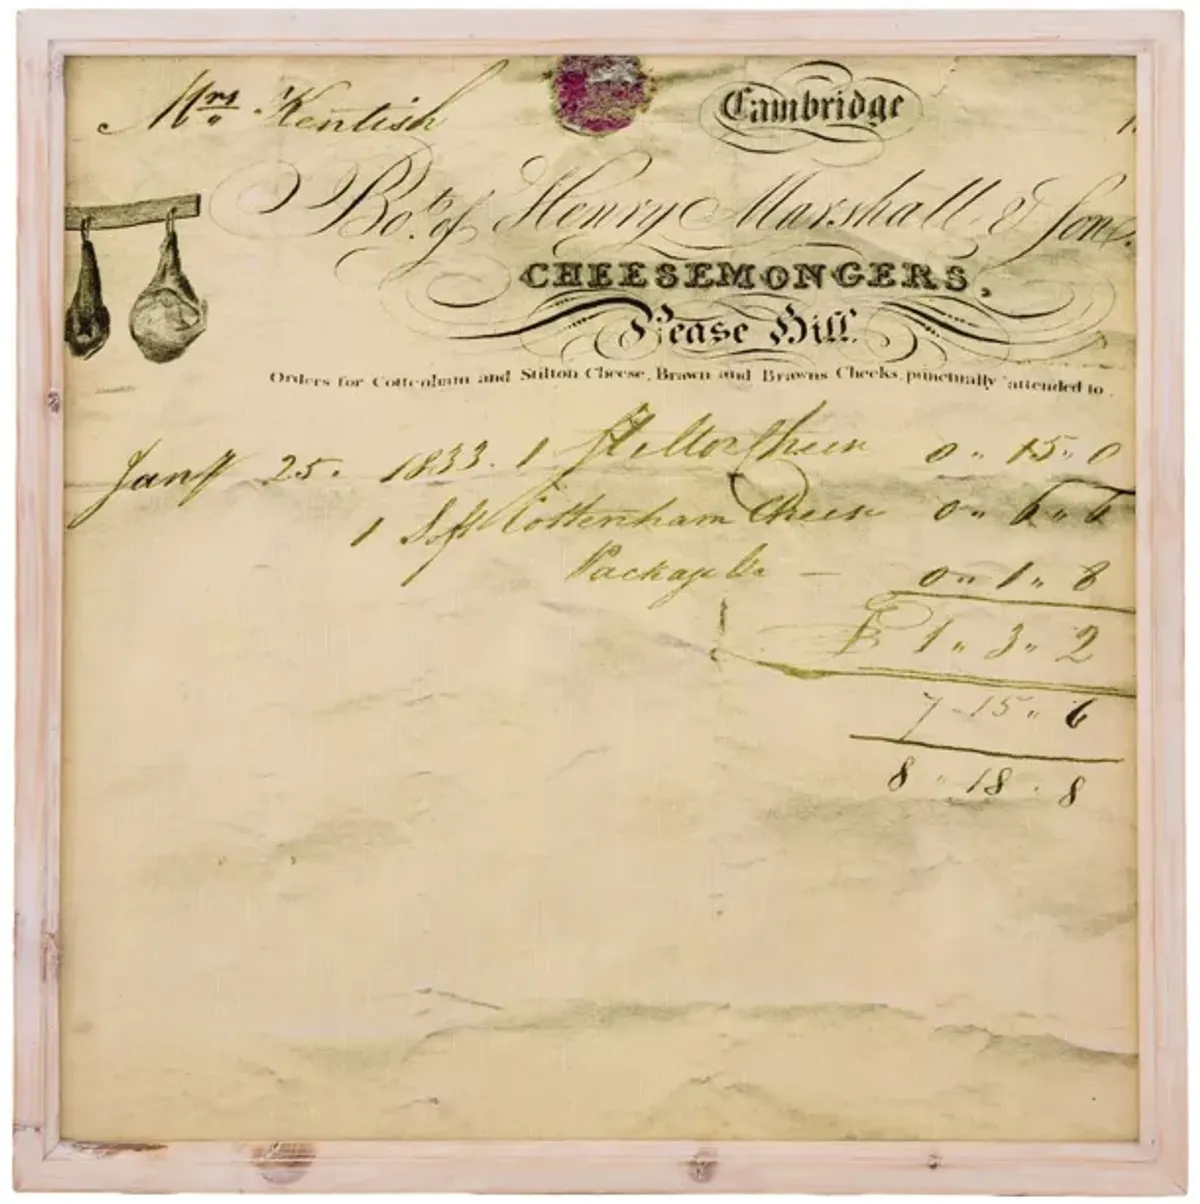 Mrs Kentish
Cambridge
1
Bot. of Henry Marshall & Son
CHEESEMONGERS,
Pease Hill.
Orders for Cottenham and Stilton Cheese, Brawn and Brawns Cheeks, punctually attended to.
Jany 25. 1833. 1 Cheese 0 " 15 " 0
1 Soft Cottenham Cheese 0 " 6 " 6
Package &c — 0 " 1 " 8
1 " 3 " 2
7 - 15 " 6
8 " 18 . 8